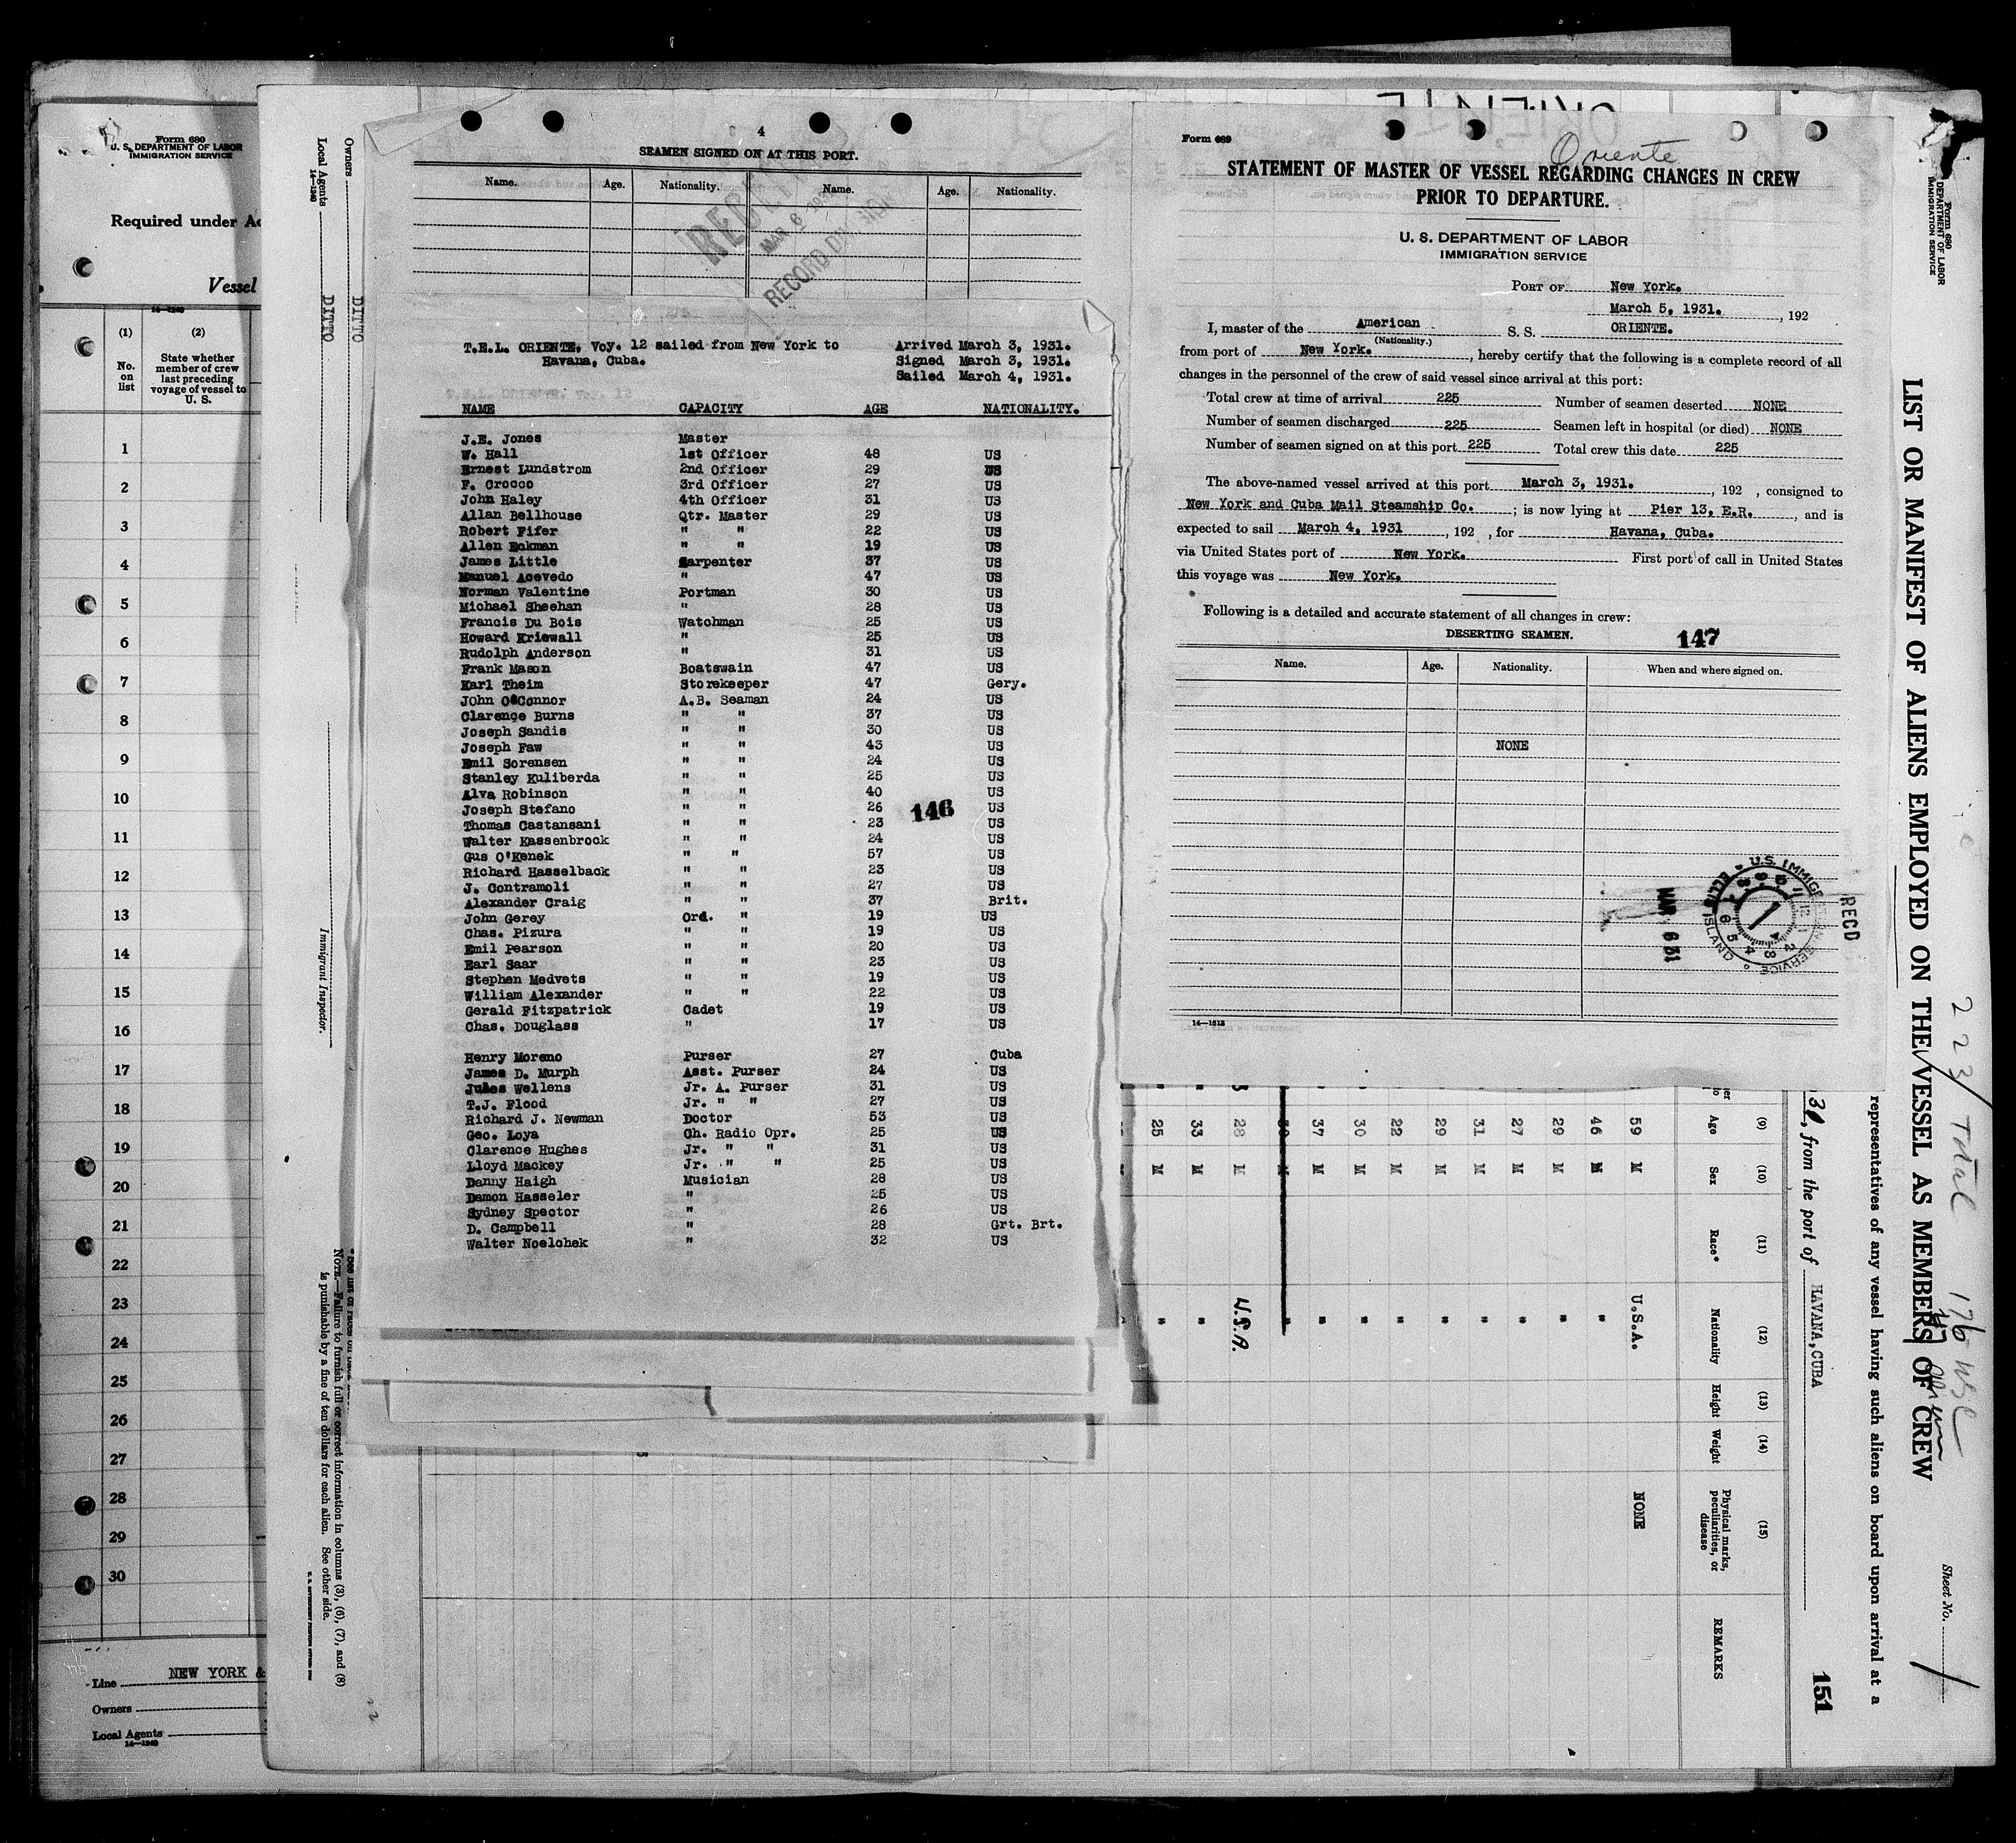 Form 680
U. S. DEPARTMENT OF LABOR
IMMIGRATION SERVICE
Required under
Vessel
14—1240
(1) (2)
No. on list
State whether member of crew last preceding voyage of vessel to U. S.
1
2
3
4
5
6
7
8
9
10
11
12
13
14
15
16
17
18
19
20
21
22
23
24
25
26
27
28
29
30
Line NEW YORK &
Owners
Local Agents
14—1240
Owners DITTO
Local Agents DITTO
14—1240
Immigrant Inspector.
NOTE.—Failure to furnish full or correct information in columns (3), (6), (7), and (8)
is punishable by a fine of ten dollars for each alien. See other side.
4
SEAMEN SIGNED ON AT THIS PORT.
Name. Age. Nationality. Name. Age. Nationality.
MAR 6
RECORD
T.E.L. ORIENTE, Voy. 12 sailed from New York to Arrived March 3, 1931.
Havana, Cuba. Signed March 3, 1931.
Sailed March 4, 1931.
NAME CAPACITY AGE NATIONALITY.
J.E. Jones Master
W. Hall 1st Officer 48 US
Ernest Lundstrom 2nd Officer 29 US
F. Crocco 3rd Officer 27 US
John Haley 4th Officer 31 US
Allan Bellhouse Qtr. Master 29 US
Robert Fifer " " 22 US
Allen Eckman " " 19 US
James Little Carpenter 37 US
Manuel Acevedo " 47 US
Norman Valentine Portman 30 US
Michael Sheehan " 28 US
Francis Du Bois Watchman 25 US
Howard Kriewall " 25 US
Rudolph Anderson " 31 US
Frank Mason Boatswain 47 US
Karl Theim Storekeeper 47 Gery.
John O'Connor A.B. Seaman 24 US
Clarence Burns " " 37 US
Joseph Sandis " " 30 US
Joseph Faw " " 43 US
Emil Sorensen " " 24 US
Stanley Kuliberda " " 25 US
Alva Robinson " " 40 US
Joseph Stefano " " 26 US
146
Thomas Castansani " " 23 US
Walter Kassenbrock " " 24 US
Gus O'Kenek " " 57 US
Richard Hasselback " " 23 US
J. Contramoli " " 27 US
Alexander Craig " " 37 Brit.
John Gerey Ord. " 19 US
Chas. Pizura " " 19 US
Emil Pearson " " 20 US
Earl Saar " " 23 US
Stephen Medvets " " 19 US
William Alexander " " 22 US
Gerald Fitzpatrick Cadet 19 US
Chas. Douglass " 17 US
Henry Moreno Purser 27 Cuba
James D. Murph Asst. Purser 24 US
Jules Wellens Jr. A. Purser 31 US
T.J. Flood Jr. " " 27 US
Richard J. Newman Doctor 53 US
Geo. Loya Ch. Radio Opr. 25 US
Clarence Hughes Jr. " " 31 US
Lloyd Mackey Jr. " " 25 US
Danny Haigh Musician 28 US
Damon Hasseler " 25 US
Sydney Spector " 26 US
D. Campbell " 28 Grt. Brt.
Walter Noelchek " 32 US
Form 689
Oriente
STATEMENT OF MASTER OF VESSEL REGARDING CHANGES IN CREW
PRIOR TO DEPARTURE.
U. S. DEPARTMENT OF LABOR
IMMIGRATION SERVICE
PORT OF New York.
March 5, 1931. , 192
I, master of the American S. S. ORIENTE.
(Nationality.)
from port of New York. , hereby certify that the following is a complete record of all
changes in the personnel of the crew of said vessel since arrival at this port:
Total crew at time of arrival 225 Number of seamen deserted NONE
Number of seamen discharged 225 Seamen left in hospital (or died) NONE
Number of seamen signed on at this port 225 Total crew this date 225
The above-named vessel arrived at this port March 3, 1931. , 192 , consigned to
New York and Cuba Mail Steamship Co. ; is now lying at Pier 13, E.R. , and is
expected to sail March 4, 1931 , 192 , for Havana, Cuba.
via United States port of New York. First port of call in United States
this voyage was New York.
Following is a detailed and accurate statement of all changes in crew:
DESERTING SEAMEN. 147
Name. Age. Nationality. When and where signed on.
NONE
MAR 6 31
U.S. IMMIG
SERVICE
ELLIS ISLAND
RECD
14—1613
ORIENTE
Form 680
DEPARTMENT OF LABOR
IMMIGRATION SERVICE
LIST OR MANIFEST OF ALIENS EMPLOYED ON THE VESSEL AS MEMBERS OF CREW
223 Total 176
Sheet No. 1
representatives of any vessel having such aliens on board upon arrival at a
, from the port of HAVANA, CUBA
151
(9) (10) (11) (12) (13) (14) (15)
Age Sex Race* Nationality Height Weight Physical marks, peculiarities, or disease REMARKS
59 M U.S.A. NONE
46 M "
29 M "
27 M "
31 M "
29 M "
22 M "
30 M "
37 M "
28 M U.S.A.
33 M "
25 M "